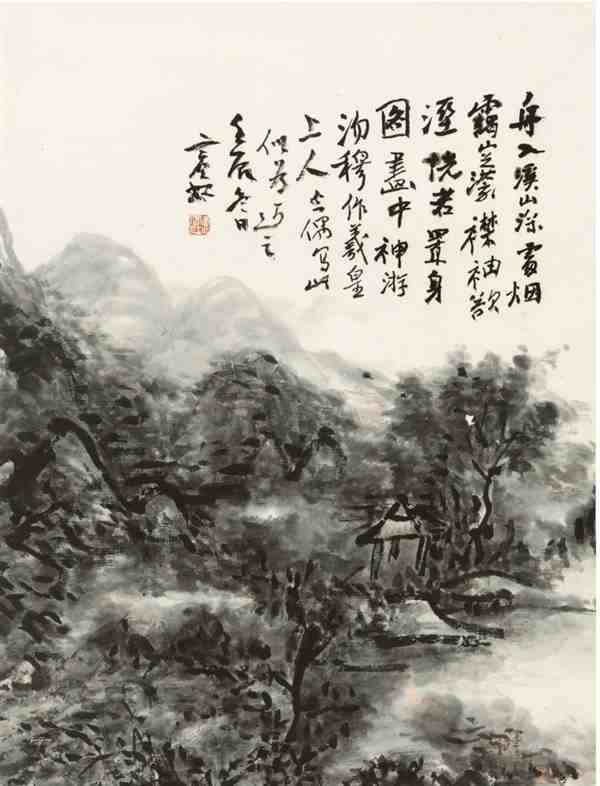 舟入溪山深處烟
靄空濛襟袖欲
溼恍若置身
圖畫中神游
沕穆作羲皇
上人偶寫此
壬辰冬日
賓虹